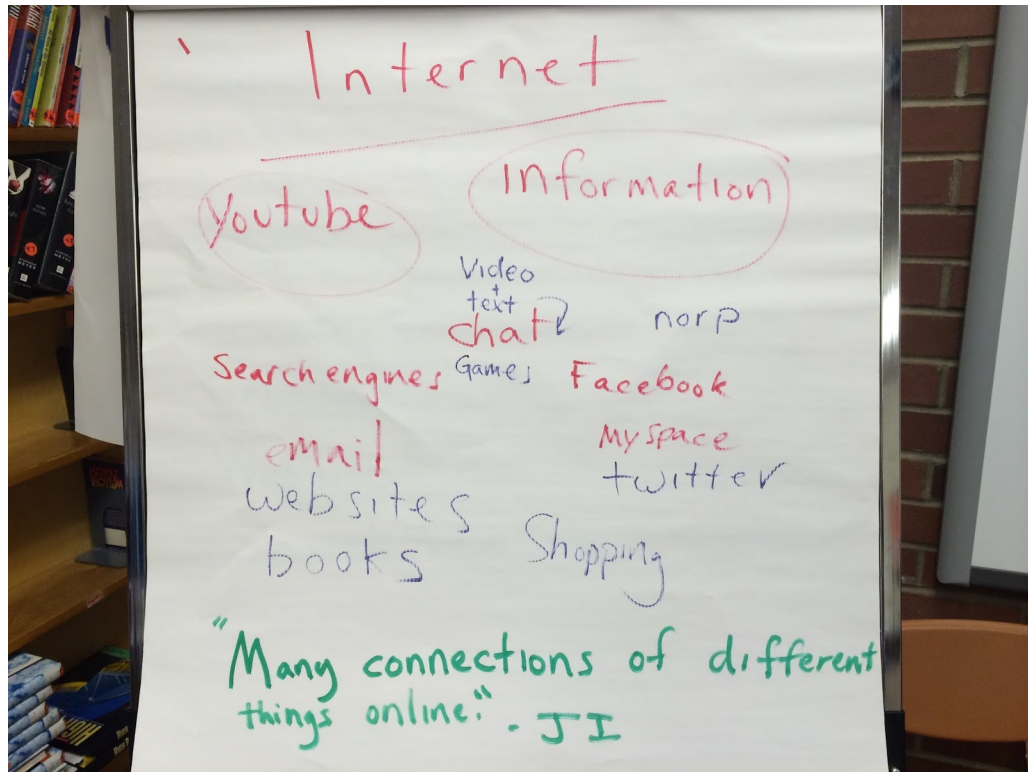 Internet
Youtube
Information
Video
+
text
chat
norp
Search engines
Games
Facebook
email
Myspace
twitter
websites
books
Shopping
"Many connections of different
things online." - JI